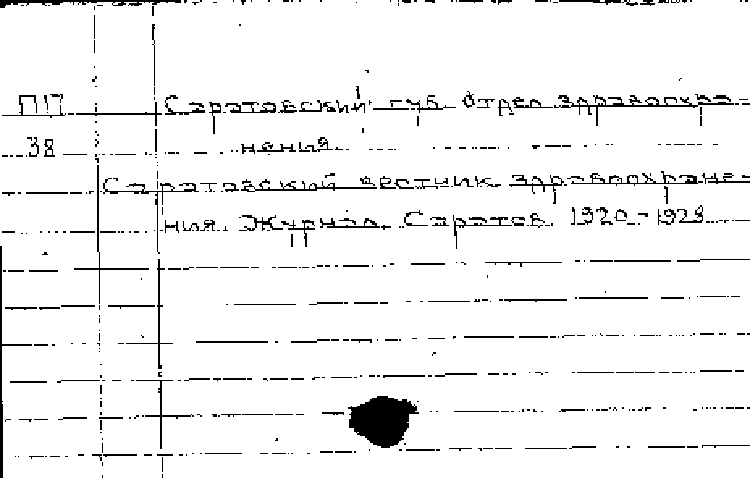 П17 Саратовский губ. отдел здравоохра-
38 нения.
Саратовский вестник здравоохране-
ния. Журнал. Саратов. 1920-1928